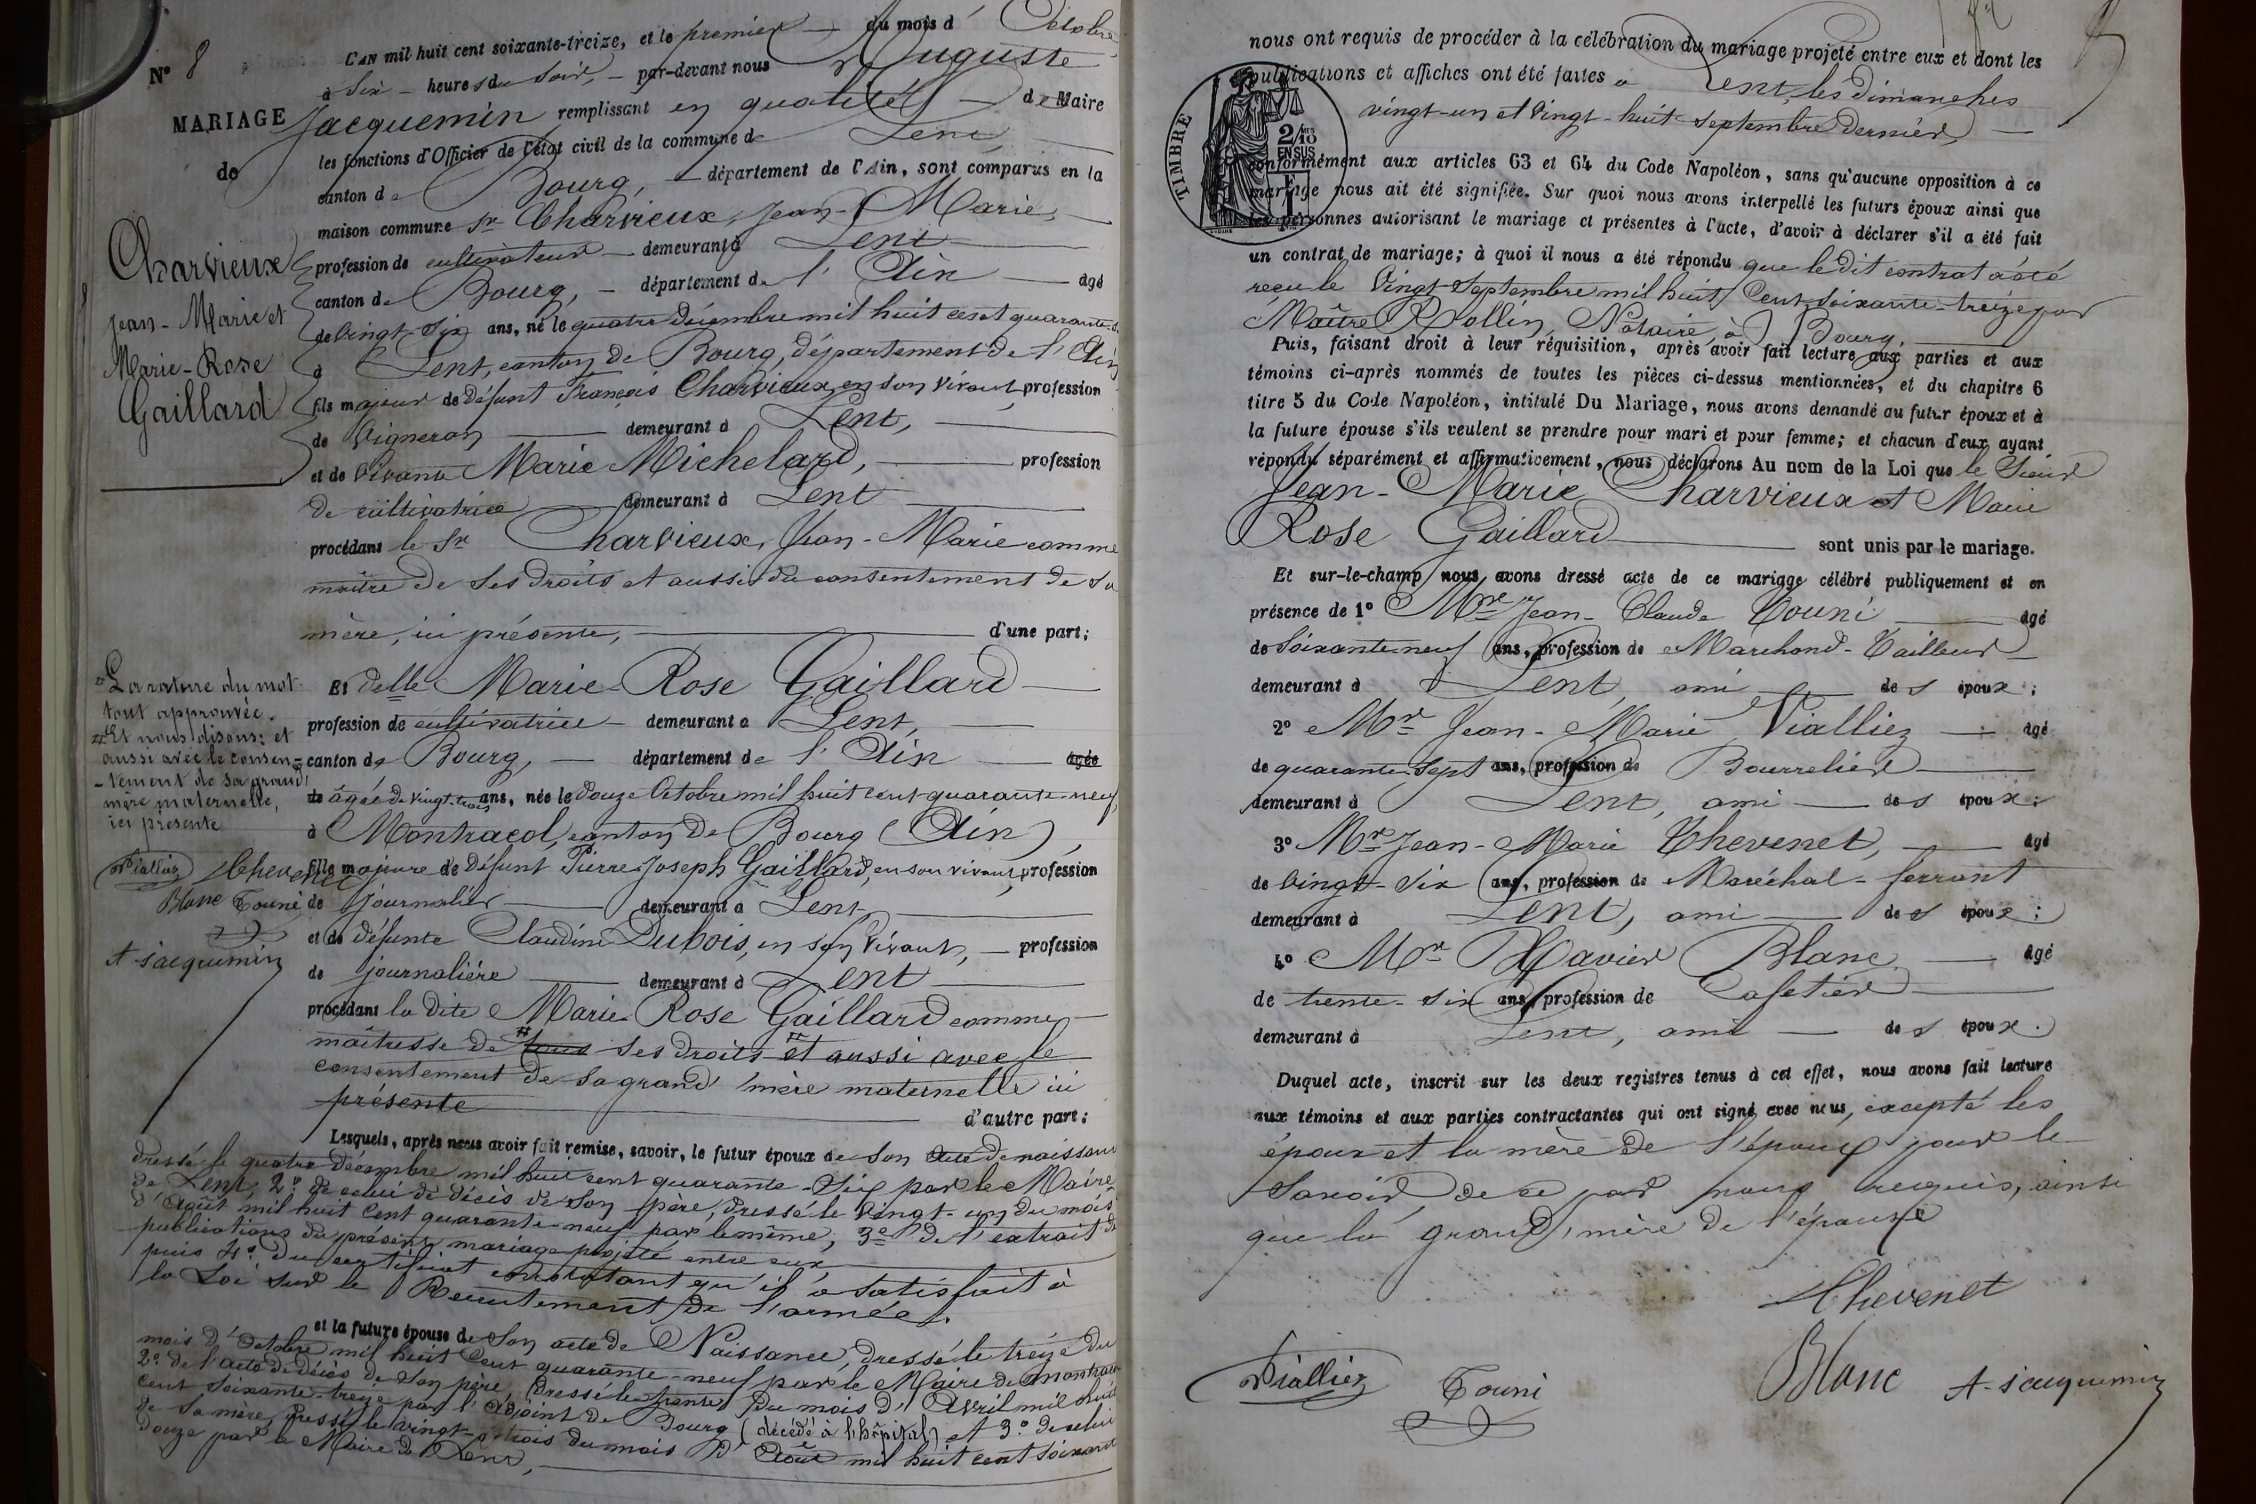 N° 8
MARIAGE
de
Charvieux
Jean-Marie et
Marie-Rose
Gaillard
L'AN mil huit cent soixante-treize, et le premier du mois d' Octobre
à Six heures du Soir, par-devant nous Auguste
Jacquemin remplissant en qualité de Maire
les fonctions d'Officier de l'état civil de la commune de Lent
canton de Bourg, département de l'Ain, sont comparus en la
maison commune Sr Charvieux, Jean-Marie,
profession de cultivateur demeurant à Lent
canton de Bourg, département de l'Ain agé
de vingt-six ans, né le quatre Décembre mil huit cent quarante-six
à Lent, canton de Bourg, département de l'Ain
fils majeur de défunt François Charvieux, en son vivant, profession
de Vigneron demeurant à Lent,
et de vivante Marie Michelard, profession
de cultivatrice demeurant à Lent
procédant le Sr Charvieux, Jean-Marie comme
maître de ses droits et aussi du consentement de sa
mère, ici présente, d'une part;
Et delle Marie-Rose Gaillard
profession de cultivatrice demeurant à Lent,
canton de Bourg, département de l'Ain agée
de âgée de vingt-trois ans, née le douze Octobre mil huit cent quarante-neuf,
à Montracol, canton de Bourg (Ain)
fille majeure de défunt Pierre-Joseph Gaillard, en son vivant, profession
de journalier demeurant à Lent,
et de défunte Claudine Dubois, en son vivant, profession
de journalière demeurant à Lent
procédant la dite Marie-Rose Gaillard comme
maîtresse de tous ses droits et aussi avec le
consentement de sa grand'mère maternelle ici
présente d'autre part;
La rature du mot
tout approuvée.
Et nous disons: et
aussi avec le consen-
-tement de sa grand'
mère maternelle,
ici présente
Vialliez Thevenet
Blanc Touni
A. Jacquemin
Lesquels, après nous avoir fait remise, savoir, le futur époux de son acte de naissance
dressé le quatre décembre mil huit cent quarante-six par le Maire
de Lent, 2° de celui de décès de son père, dressé le vingt-un du mois
d'Août mil huit cent quarante-neuf par le même; 3° de l'extrait de
publications du présent mariage projeté entre eux
puis 4° du certificat constatant qu'il a satisfait à
la Loi sur le Recrutement de l'armée.
et la future épouse de son acte de Naissance, dressé le treize du
mois d'Octobre mil huit cent quarante-neuf par le Maire de Montracol
2° de l'acte de décès de son père, dressé le trente du mois d'Avril mil huit
cent soixante-treize par l'adjoint de Bourg (décédé à l'hôpital) et 3° de celui
de sa mère, dressé le vingt-trois du mois d'Août mil huit cent soixante
douze par le Maire de Lent,
nous ont requis de procéder à la célébration du mariage projeté entre eux et dont les
publications et affiches ont été faites à Lent, les dimanches
vingt-un et vingt-huit Septembre dernier
TIMBRE
2/10
EN SUS
conformément aux articles 63 et 64 du Code Napoléon, sans qu'aucune opposition à ce
mariage nous ait été signifiée. Sur quoi nous avons interpellé les futurs époux ainsi que
les personnes autorisant le mariage et présentes à l'acte, d'avoir à déclarer s'il a été fait
un contrat de mariage; à quoi il nous a été répondu que le dit contrat a été
reçu le vingt Septembre mil huit cent soixante-treize par
Maître Rollin, Notaire à Bourg.
Puis, faisant droit à leur réquisition, après avoir fait lecture aux parties et aux
témoins ci-après nommés de toutes les pièces ci-dessus mentionnées, et du chapitre 6
titre 5 du Code Napoléon, intitulé Du Mariage, nous avons demandé au futur époux et à
la future épouse s'ils veulent se prendre pour mari et pour femme; et chacun d'eux ayant
répondu séparément et affirmativement, nous déclarons Au nom de la Loi que le Sieur
Jean-Marie Charvieux et Marie
Rose Gaillard sont unis par le mariage.
Et sur-le-champ nous avons dressé acte de ce mariage célébré publiquement et en
présence de 1° Mr Jean-Claude Touni agé
de soixante-neuf ans, profession de Marchand-Tailleur
demeurant à Lent, ami des époux;
2° Mr Jean-Marie Vialliez agé
de quarante-sept ans, profession de Bourrelier
demeurant à Lent, ami des époux;
3° Mr Jean-Marie Thevenet, agé
de vingt-six ans, profession de Maréchal-ferrant
demeurant à Lent, ami des époux;
4° Mr Xavier Blanc agé
de trente-six ans profession de Cafetier
demeurant à Lent, ami des époux.
Duquel acte, inscrit sur les deux registres tenus à cet effet, nous avons fait lecture
aux témoins et aux parties contractantes qui ont signé avec nous, excepté les
époux et la mère de l'époux pour le
savoir, de ce par nous requis, ainsi
que la grand'mère de l'épouse
Thevenet
Vialliez Touni Blanc A. Jacquemin